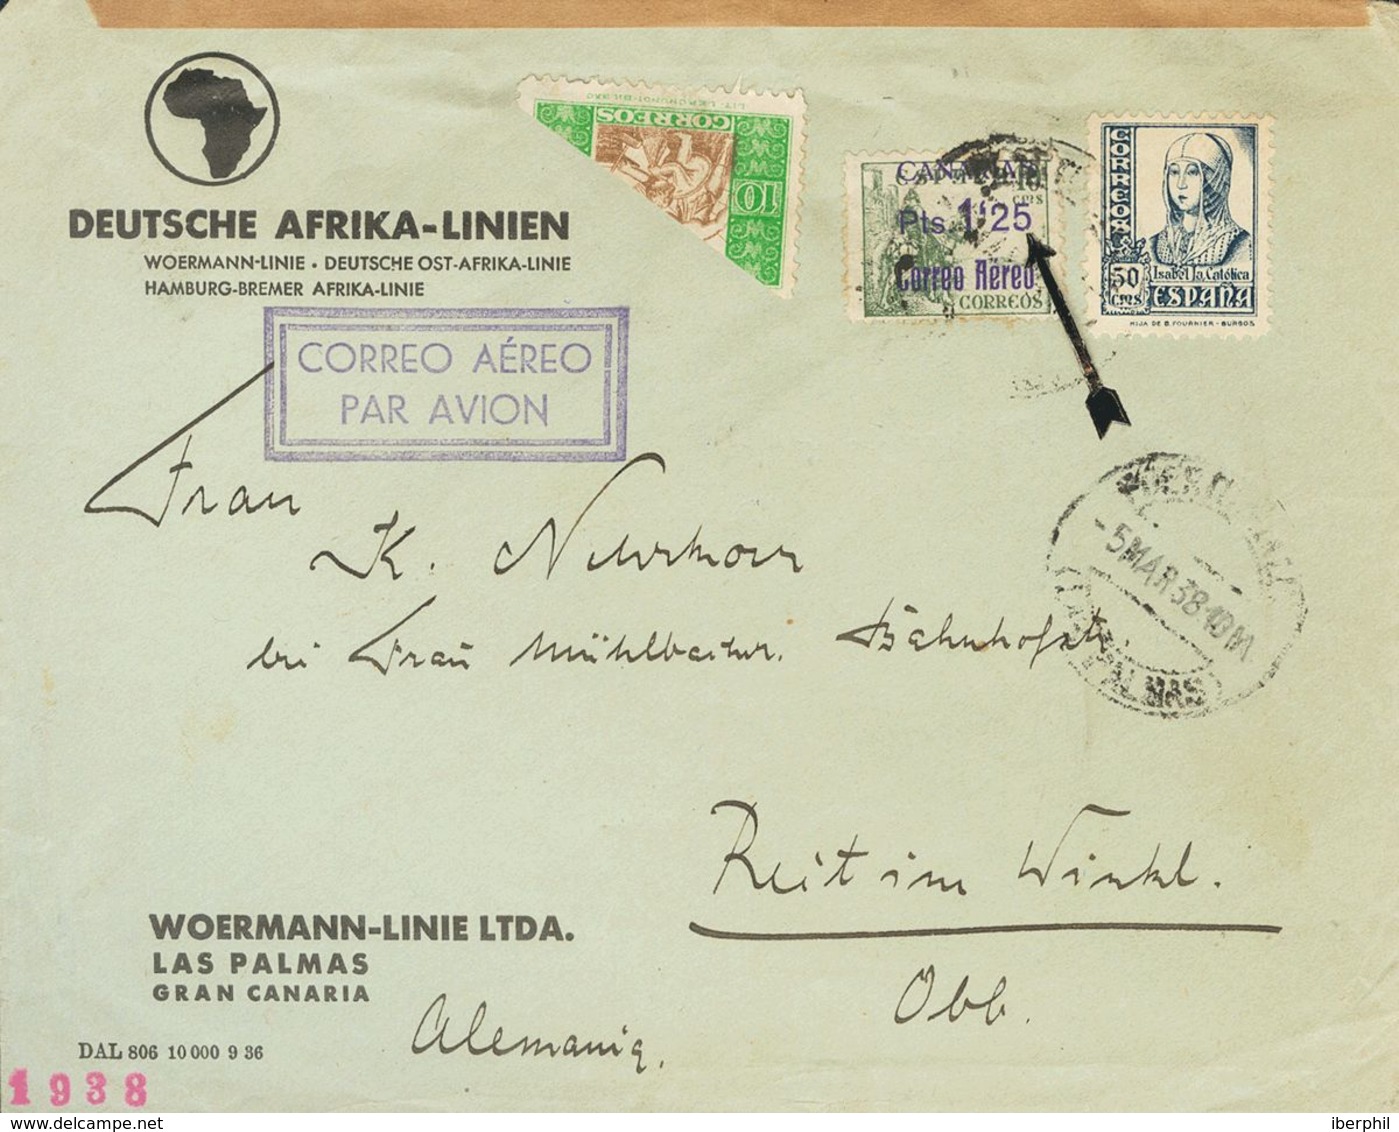 DEUTSCHE AFRIKA-LINIEN
WOERMANN-LINIE • DEUTSCHE OST-AFRIKA-LINIE
HAMBURG-BREMER AFRIKA-LINIE
CORREO AÉREO
PAR AVION
LIT. LERCHUNDI-BILBAO
CORREOS
10
CANARIAS
10
cms
Pts. 1'25
Correo Aéreo
CORREOS
CORREOS
50
cms
Isabel la Católica
ESPAÑA
HIJA DE B. FOURNIER - BURGOS
-5 MAR 38 10M
PALMAS
Frau
K.
bei Frau Mühlbauer. Bahnhofstr.
Reit im Winkl.
Obb.
Alemania.
WOERMANN-LINIE LTDA.
LAS PALMAS
GRAN CANARIA
DAL 806 10 000 9 36
1938
Delcampe.net
iberphil